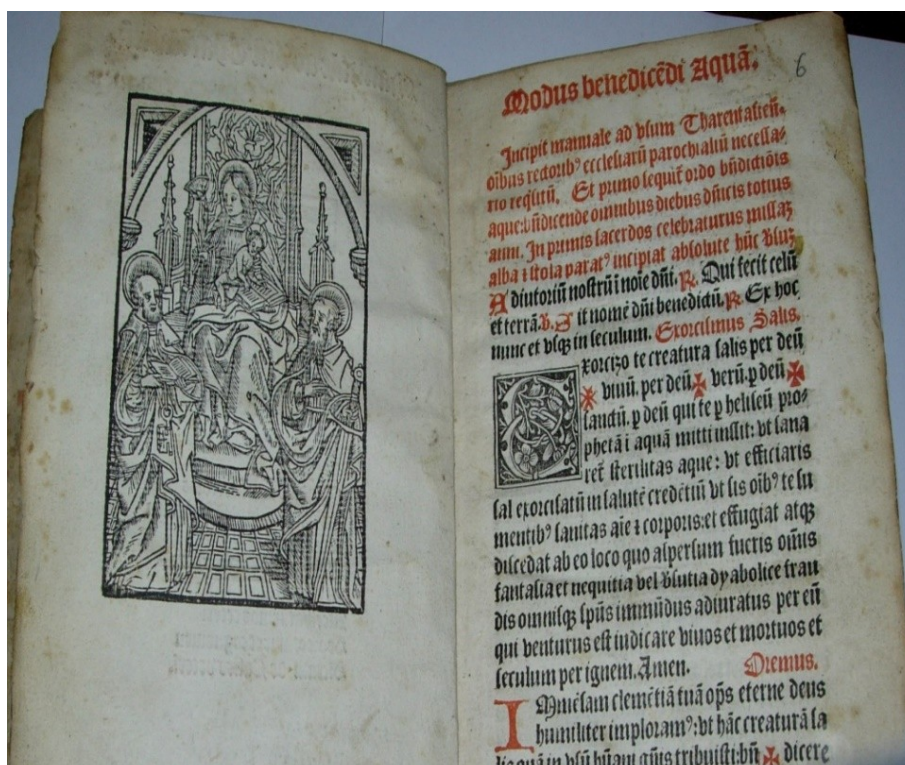 Modus benedicēdi Aquā.
6
Incipit manuale ad vsum Tharentasien̄.
oībus rectoribꝰ ecclesiarū parochialiū necessa⸗
rio reqsitū. Et primo sequiť ordo bn̄dictiōis
aque: bn̄dicende omnibus diebus dn̄icis totius
anni. In primis sacerdos celebraturus missaꝫ
alba ⁊ stola paratꝰ incipiat absolute hūc
Adiutoriū nostrū ī noīe dn̄i. ℟. Qui fecit celū
et terrā. ℣. Sit nomē dn̄i benedictū. ℟. Ex hoc
nunc et vsqꝫ in seculum. Exorcismus Salis.
Exorcizo te creatura salis per deū
✠ viuū. per deū ✠ verū. ꝑ deū ✠
sanctū. ꝑ deū qui te ꝑ heliseū pro⸗
phetā ī aquā mitti iussit: vt sana
ret̄ sterilitas aque: vt efficiaris
sal exorcisatū in salutē credētiū vt sis oībꝰ te su
mentibꝰ sanitas aīe ⁊ corporis: et effugiat atqꝫ
discedat ab eo loco quo aspersum fueris omīs
fantasia et nequitia vel vsutia dyabolice frau
dis omnisqꝫ spūs immūdus adiuratus per eū
qui venturus est iudicare viuos et mortuos et
seculum per ignem. Amen. Oremus.
IMmēsam clemētiā tuā op̄s eterne deus
humiliter imploramꝰ: vt hāc creaturā sa
lis quā in vsū hūani gn̄is tribuisti: bn̄ ✠ dicere